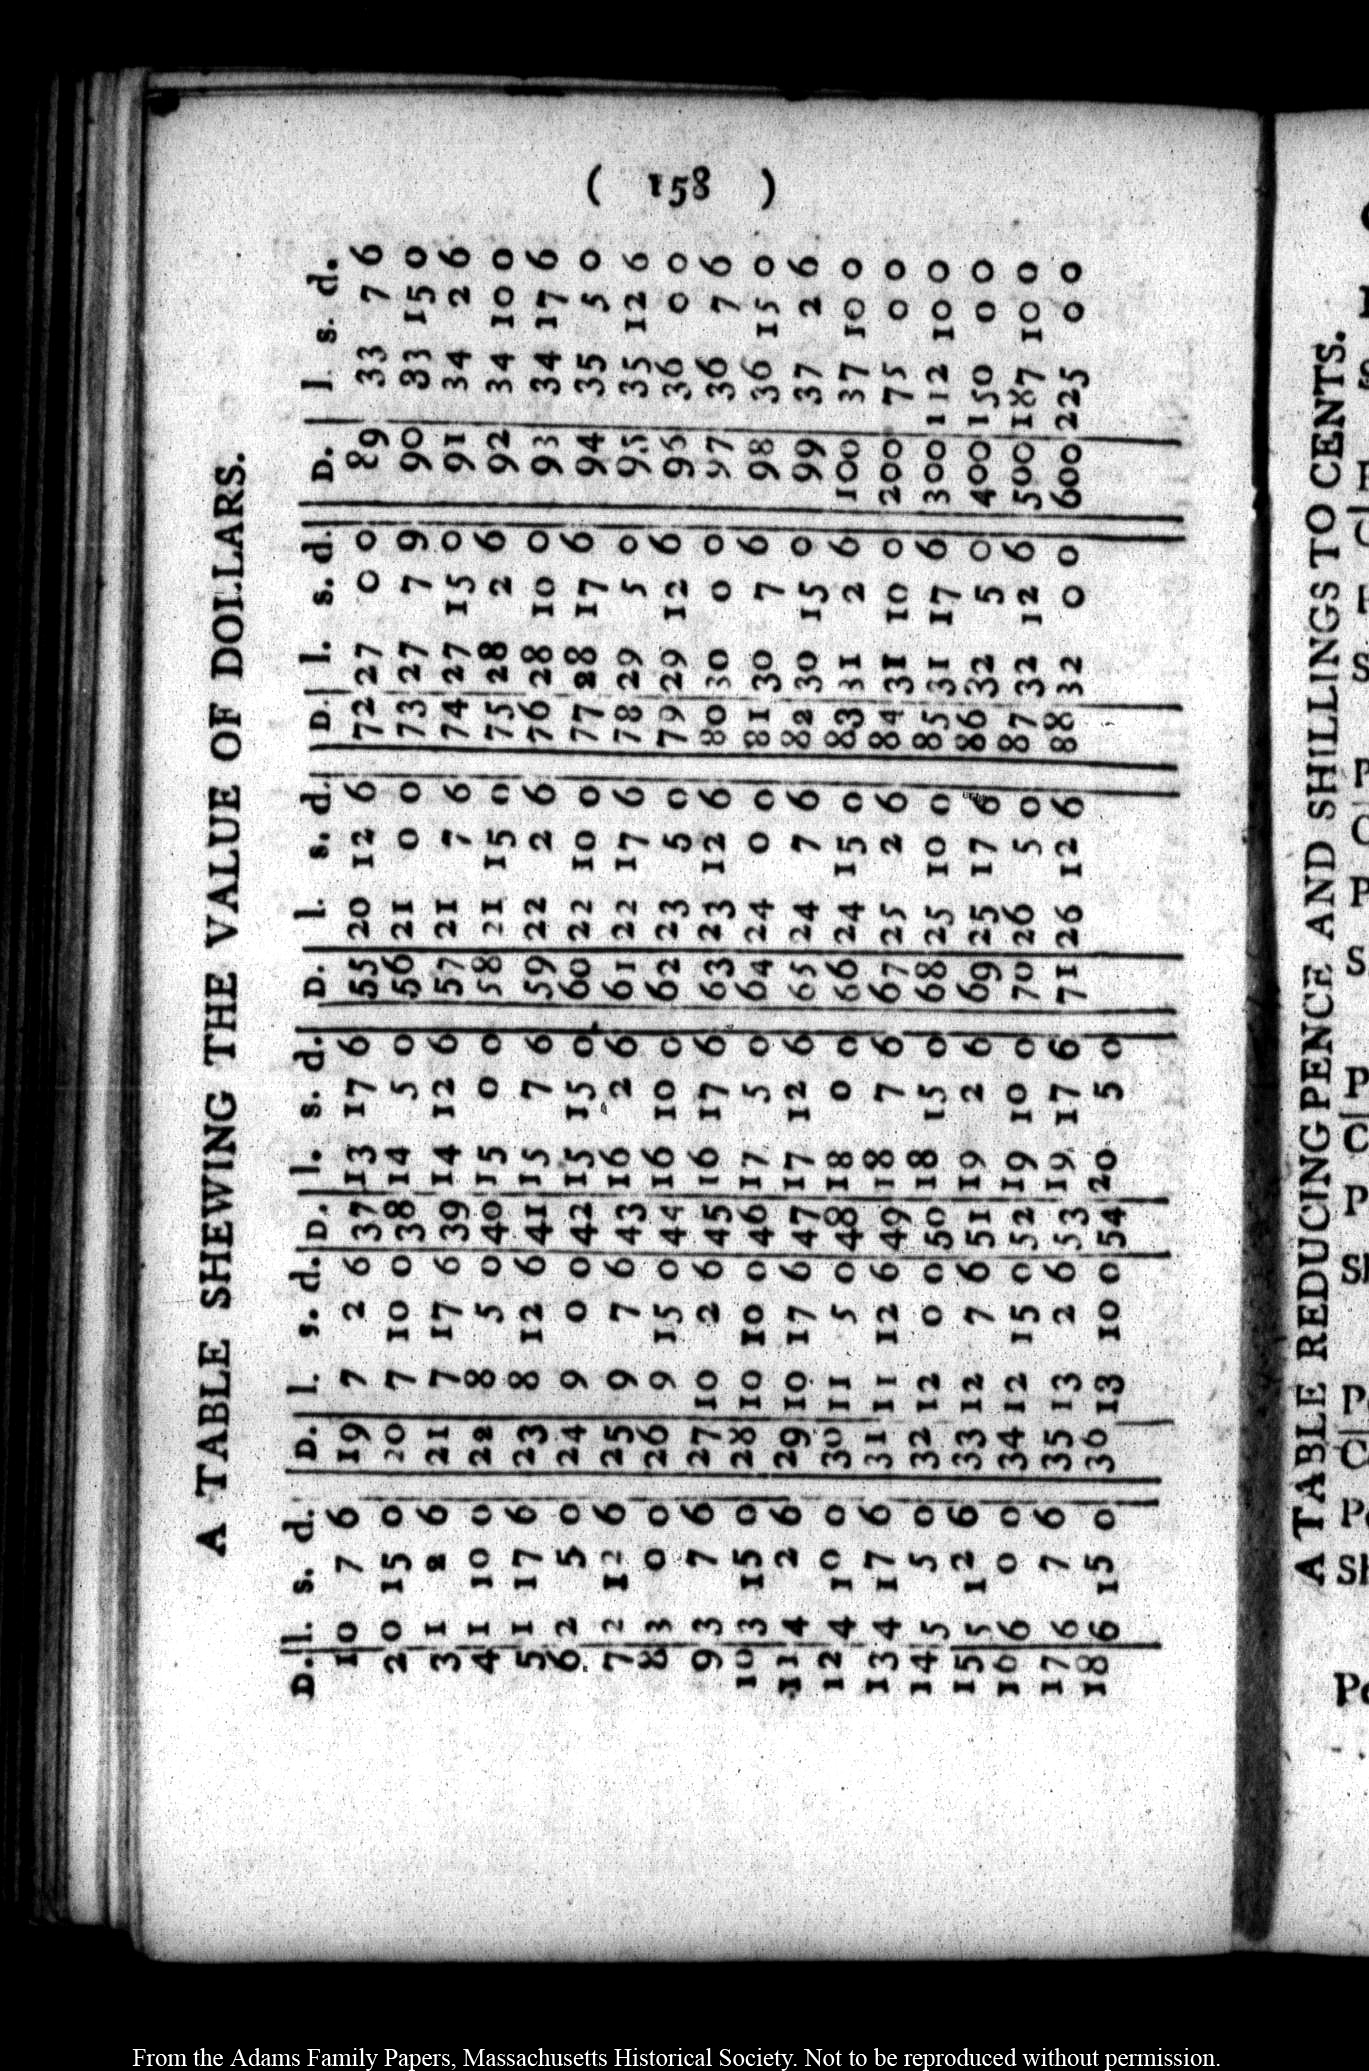 ( 158 )
A TABLE SHEWING THE VALUE OF DOLLARS.
D. l. s. d. D. l. s. d. D. l. s. d. D. l. s. d. D. l. s. d. D. l. s. d.
1 0 7 6 19 7 2 6 37 13 17 6 55 20 12 6 72 27 0 0 89 33 7 6
2 0 15 0 20 7 10 0 38 14 5 0 56 21 0 0 73 27 7 9 90 33 15 0
3 1 2 6 21 7 17 6 39 14 12 6 57 21 7 6 74 27 15 0 91 34 2 6
4 1 10 0 22 8 5 0 40 15 0 0 58 21 15 0 75 28 2 6 92 34 10 0
5 1 17 6 23 8 12 6 41 15 7 6 59 22 2 6 76 28 10 0 93 34 17 6
6 2 5 0 24 9 0 0 42 15 15 0 60 22 10 0 77 28 17 6 94 35 5 0
7 2 12 6 25 9 7 6 43 16 2 6 61 22 17 6 78 29 5 0 95 35 12 6
8 3 0 0 26 9 15 0 44 16 10 0 62 23 5 0 79 29 12 6 96 36 0 0
9 3 7 6 27 10 2 6 45 16 17 6 63 23 12 6 80 30 0 0 97 36 7 6
10 3 15 0 28 10 10 0 46 17 5 0 64 24 0 0 81 30 7 6 98 36 15 0
11 4 2 6 29 10 17 6 47 17 12 6 65 24 7 6 82 30 15 0 99 37 2 6
12 4 10 0 30 11 5 0 48 18 0 0 66 24 15 0 83 31 2 6 100 37 10 0
13 4 17 6 31 11 12 6 49 18 7 6 67 25 2 6 84 31 10 0 200 75 0 0
14 5 5 0 32 12 0 0 50 18 15 0 68 25 10 0 85 31 17 6 300 112 10 0
15 5 12 6 33 12 7 6 51 19 2 6 69 25 17 6 86 32 5 0 400 150 0 0
16 6 0 0 34 12 15 0 52 19 10 0 70 26 5 0 87 32 12 6 500 187 10 0
17 6 7 6 35 13 2 6 53 19 17 6 71 26 12 6 88 32 0 0 600 225 0 0
18 6 15 0 36 13 10 0 54 20 5 0
A TABLE REDUCING PENCE AND SHILLINGS TO CENTS.
From the Adams Family Papers, Massachusetts Historical Society. Not to be reproduced without permission.